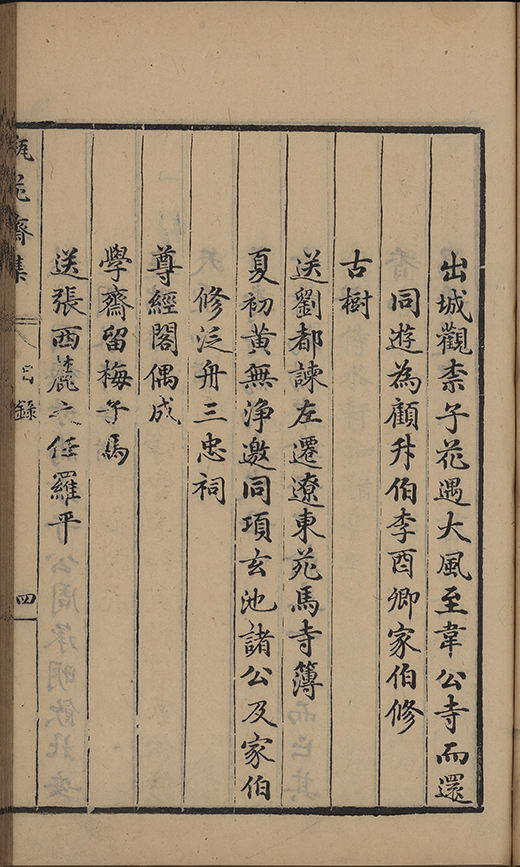 出城觀柰子花遇大風至韋公寺而還
同遊為顧升伯李酉卿家伯修
古樹
送劉都諫左遷遼東苑馬寺簿
夏初黃無淨邀同項玄池諸公及家伯
修泛舟三忠祠
尊經閣偶成
學齋留梅子馬
送張西麓之任羅平
瓶花齋集
目錄
四